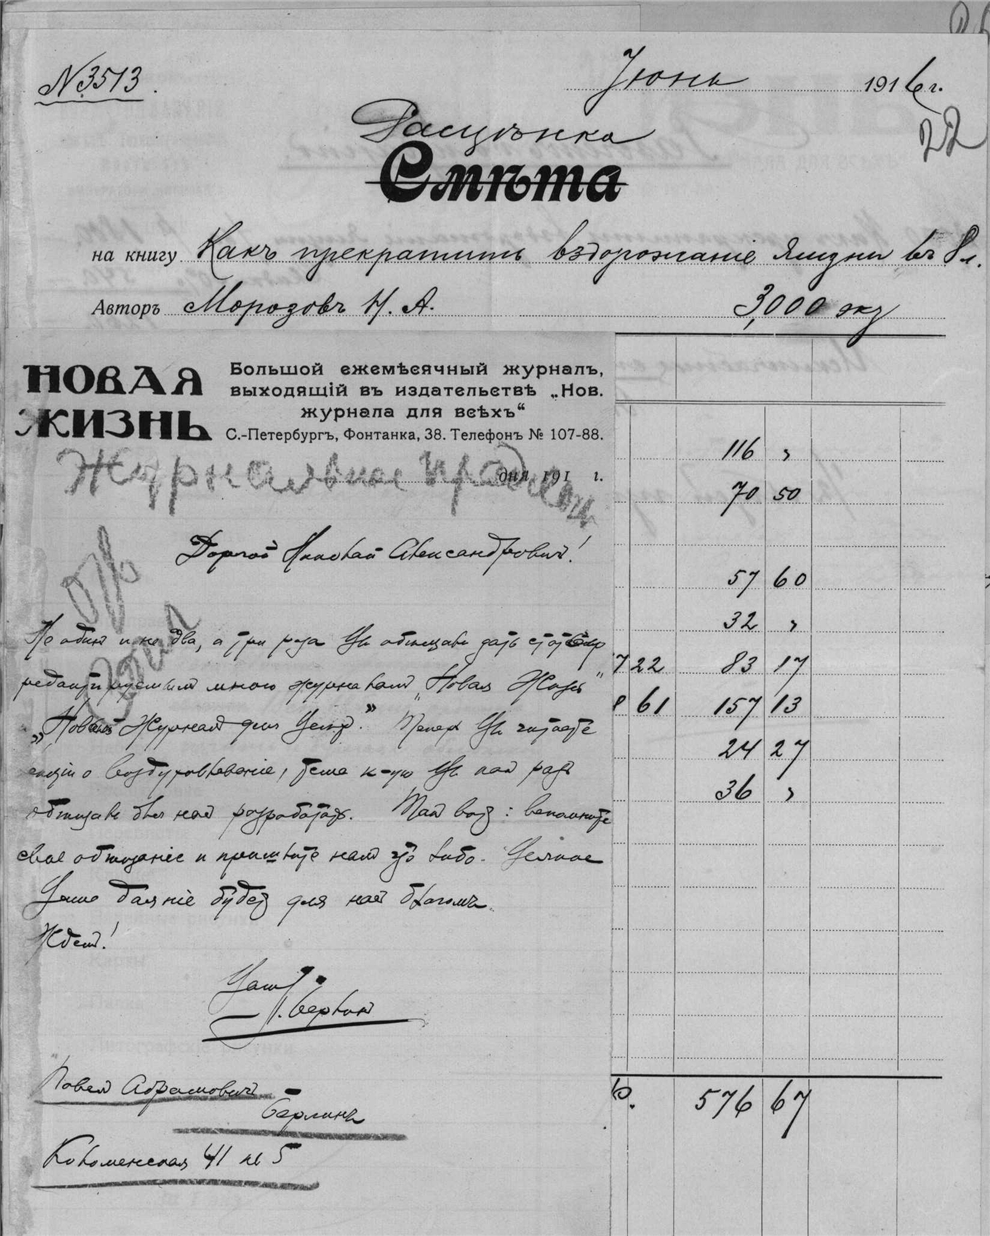 № 3513.
Июнь 1916 г.
22
Расцѣнка
Смѣта
на книгу Какъ прекратить вздорожаніе жизни въ 8 л.
Авторъ Морозовъ Н. А. 3,000 экз
НОВАЯ
ЖИЗНЬ
Большой ежемѣсячный журналъ,
выходящій въ издательствѣ „Нов.
журнала для всѣхъ“
С.-Петербургъ, Фонтанка, 38. Телефонъ № 107-88.
Журнальное
дня 191 г.
Дорогой Николай Александровичъ!
Не одинъ и не два, а три раза Вы обѣщали дать
редактируемымъ мною журналамъ „Новая Жизнь“
„Новый Журнал для Всѣх.“ Теперь Вы читаете
о Воздухоплаваніе, тема к-ую Вы нам раз
обѣщали был нам разработать. Так вот: вспомните
свое обѣщаніе и пришлите нам что либо. Всякое
Ваше даяніе будет для нас благомъ.
Ждем!
Ваш
П. Берлин
Павел Абрамович
Берлинъ
Коломенская 41 кв 5
116 „
70 50
57 60
32 „
722 83 17
8 61 157 13
24 27
36 „
р. 576 67